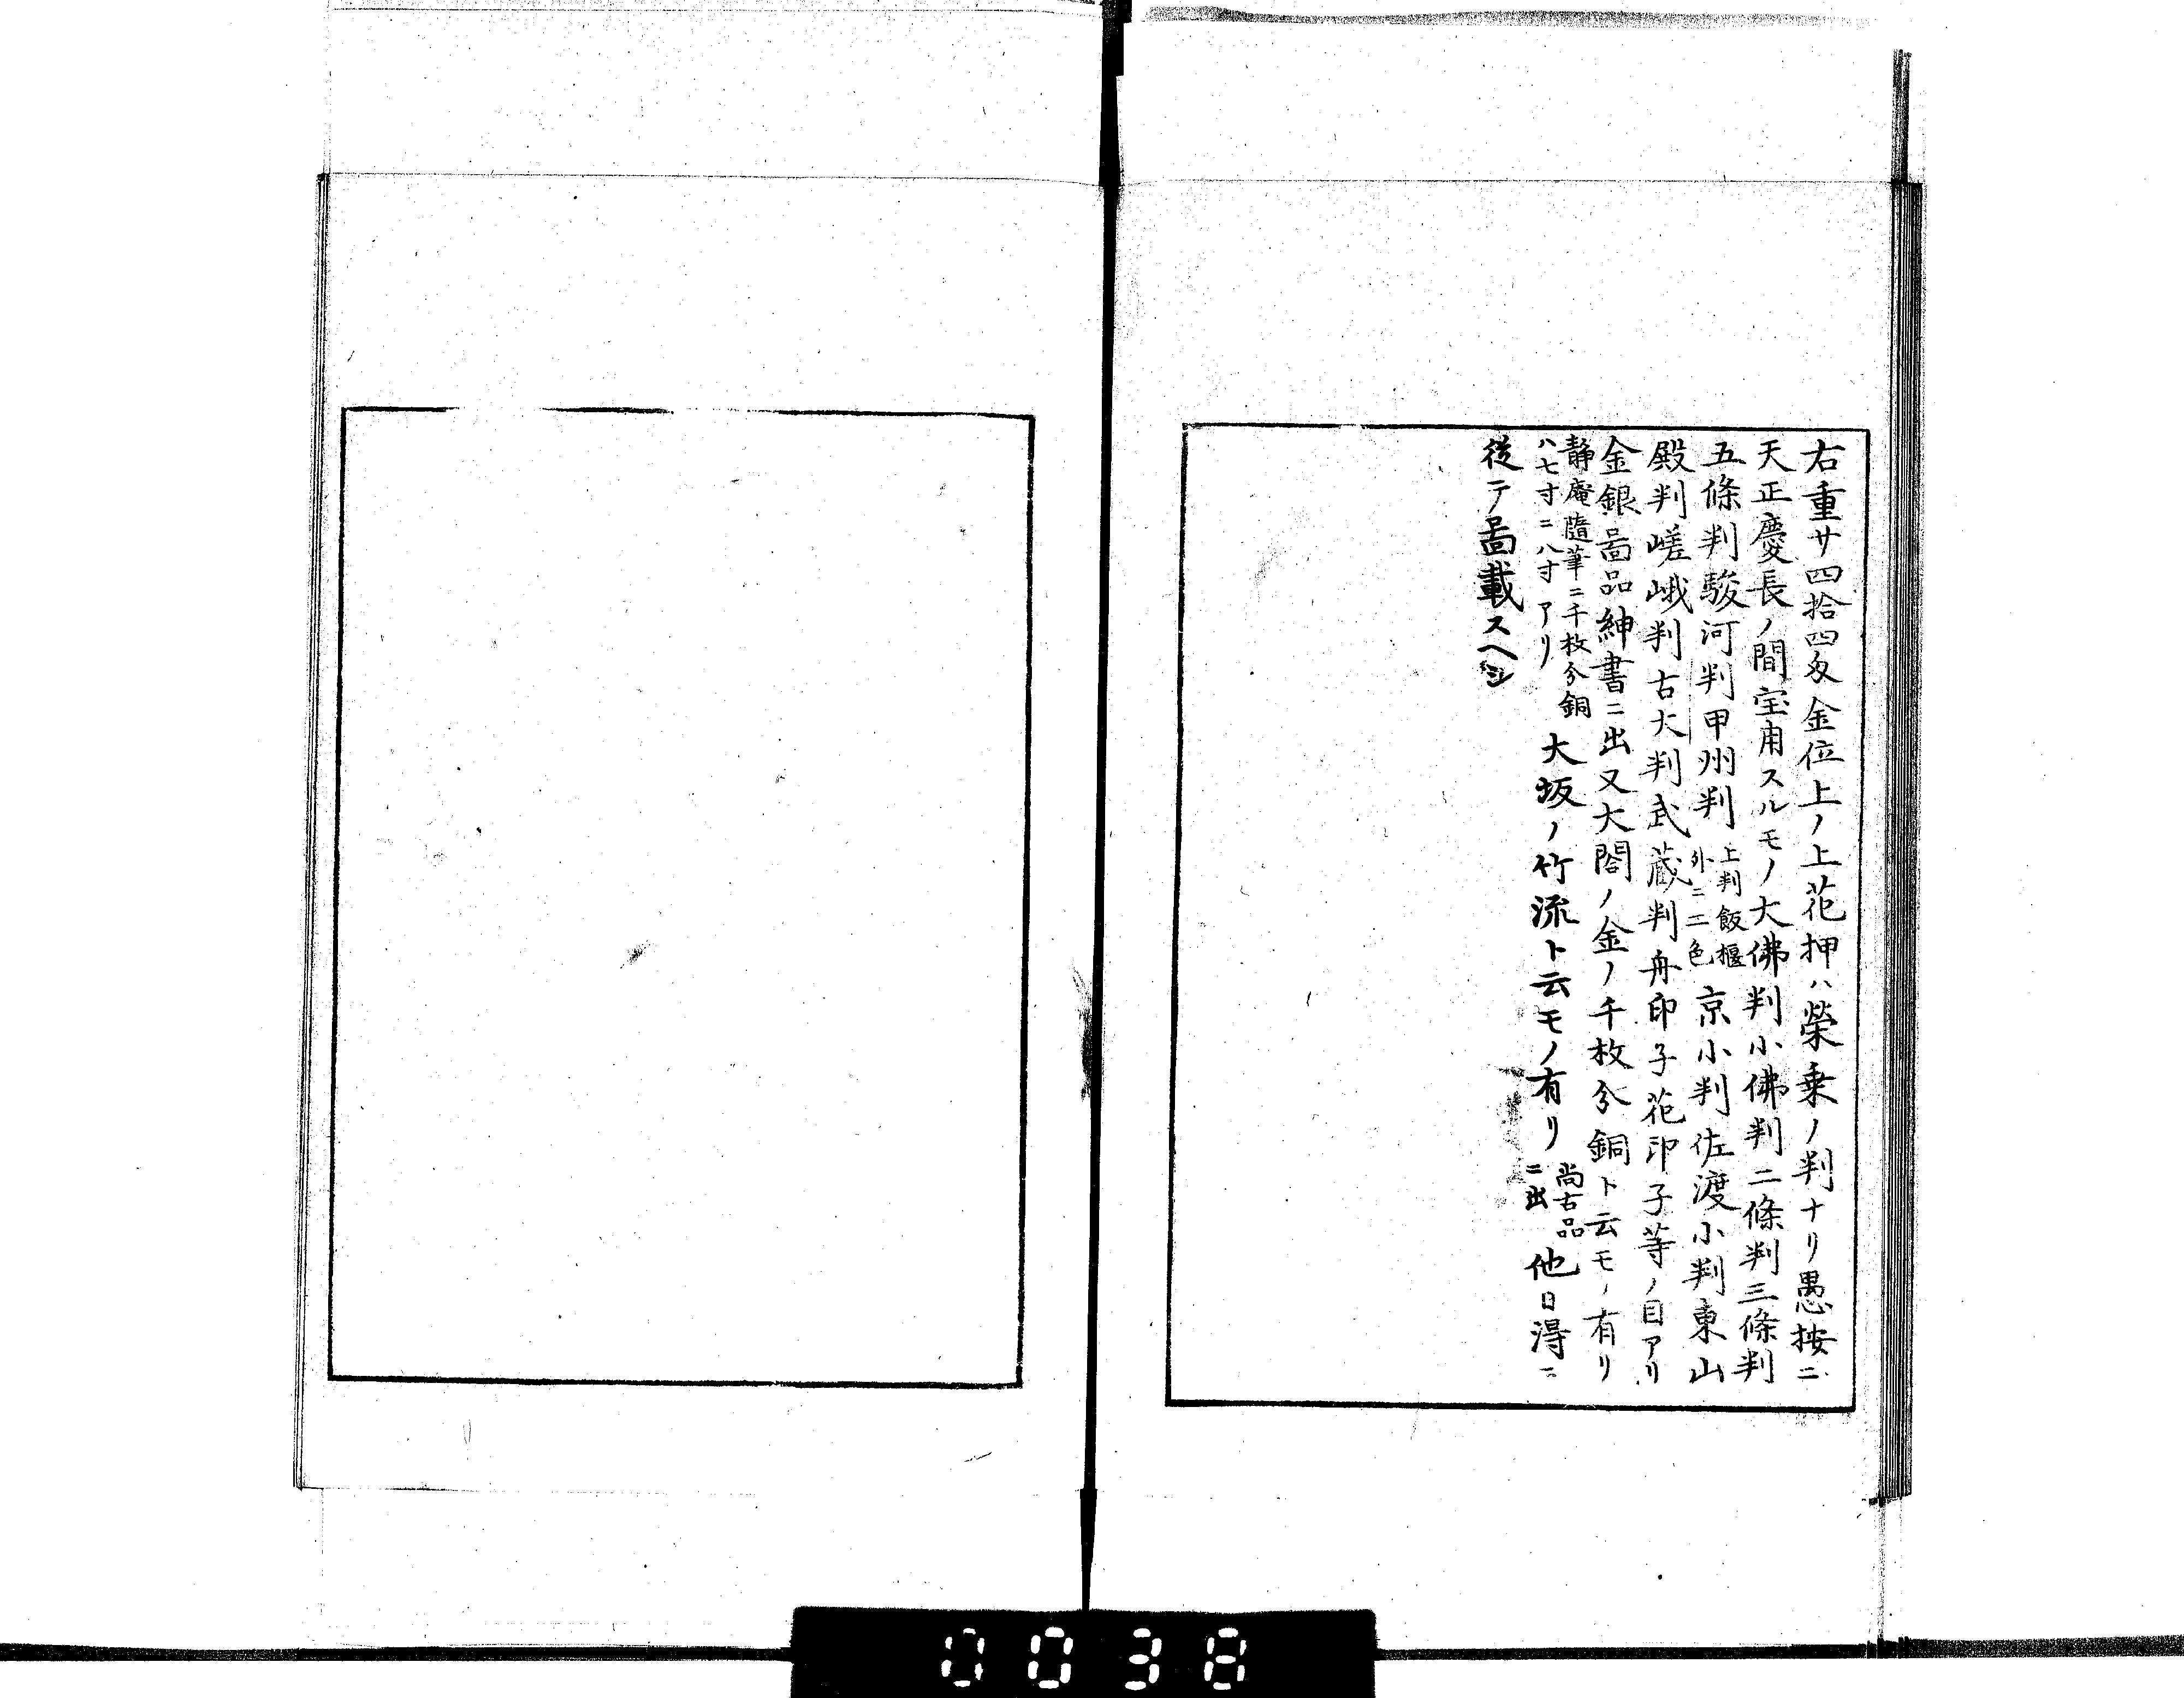 右重サ四拾四匁金位上ノ上花押ハ榮乗ノ判ナリ愚按ニ
天正慶長ノ間宝用スルモノ大佛判小佛判二條判三條判
五條判駿河判甲州判
上判飯櫃
外ニ二色
京小判佐渡小判東山
殿判嵯峨判古大判武蔵判舟印子花印子等ノ目アリ
金銀啚品紳書ニ出又大閤ノ金ノ千枚分銅ト云モノ有リ
静庵隨筆ニ千枚分銅
ハ七寸ニ八寸アリ
大坂ノ竹流ト云モノ有リ
尚古品
ニ出
他日淂ニ
従テ啚載スヘシ
0038